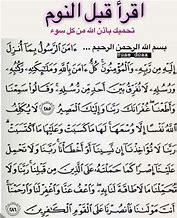 اقرأ قبل النوم
تحميك بأذن الله من كل سوء
بسم الله الرحمن الرحيم ... ءَامَنَ ٱلرَّسُولُ بِمَآ أُنزِلَ
إِلَيْهِ مِن رَّبِّهِۦ وَٱلْمُؤْمِنُونَ كُلٌّ ءَامَنَ بِٱللَّهِ وَمَلَٰٓئِكَتِهِۦ وَكُتُبِهِۦ
وَرُسُلِهِۦ لَا نُفَرِّقُ بَيْنَ أَحَدٍ مِّن رُّسُلِهِۦ وَقَالُوا۟ سَمِعْنَا
وَأَطَعْنَا غُفْرَانَكَ رَبَّنَا وَإِلَيْكَ ٱلْمَصِيرُ ٢٨٥ لَا يُكَلِّفُ
ٱللَّهُ نَفْسًا إِلَّا وُسْعَهَا لَهَا مَا كَسَبَتْ وَعَلَيْهَا مَا ٱكْتَسَبَتْ
رَبَّنَا لَا تُؤَاخِذْنَآ إِن نَّسِينَآ أَوْ أَخْطَأْنَا رَبَّنَا وَلَا
تَحْمِلْ عَلَيْنَآ إِصْرًا كَمَا حَمَلْتَهُۥ عَلَى ٱلَّذِينَ مِن قَبْلِنَا رَبَّنَا وَلَا
تُحَمِّلْنَا مَا لَا طَاقَةَ لَنَا بِهِۦ وَٱعْفُ عَنَّا وَٱغْفِرْ لَنَا وَٱرْحَمْنَآ
أَنتَ مَوْلَىٰنَا فَٱنصُرْنَا عَلَى ٱلْقَوْمِ ٱلْكَٰفِرِينَ ٢٨٦